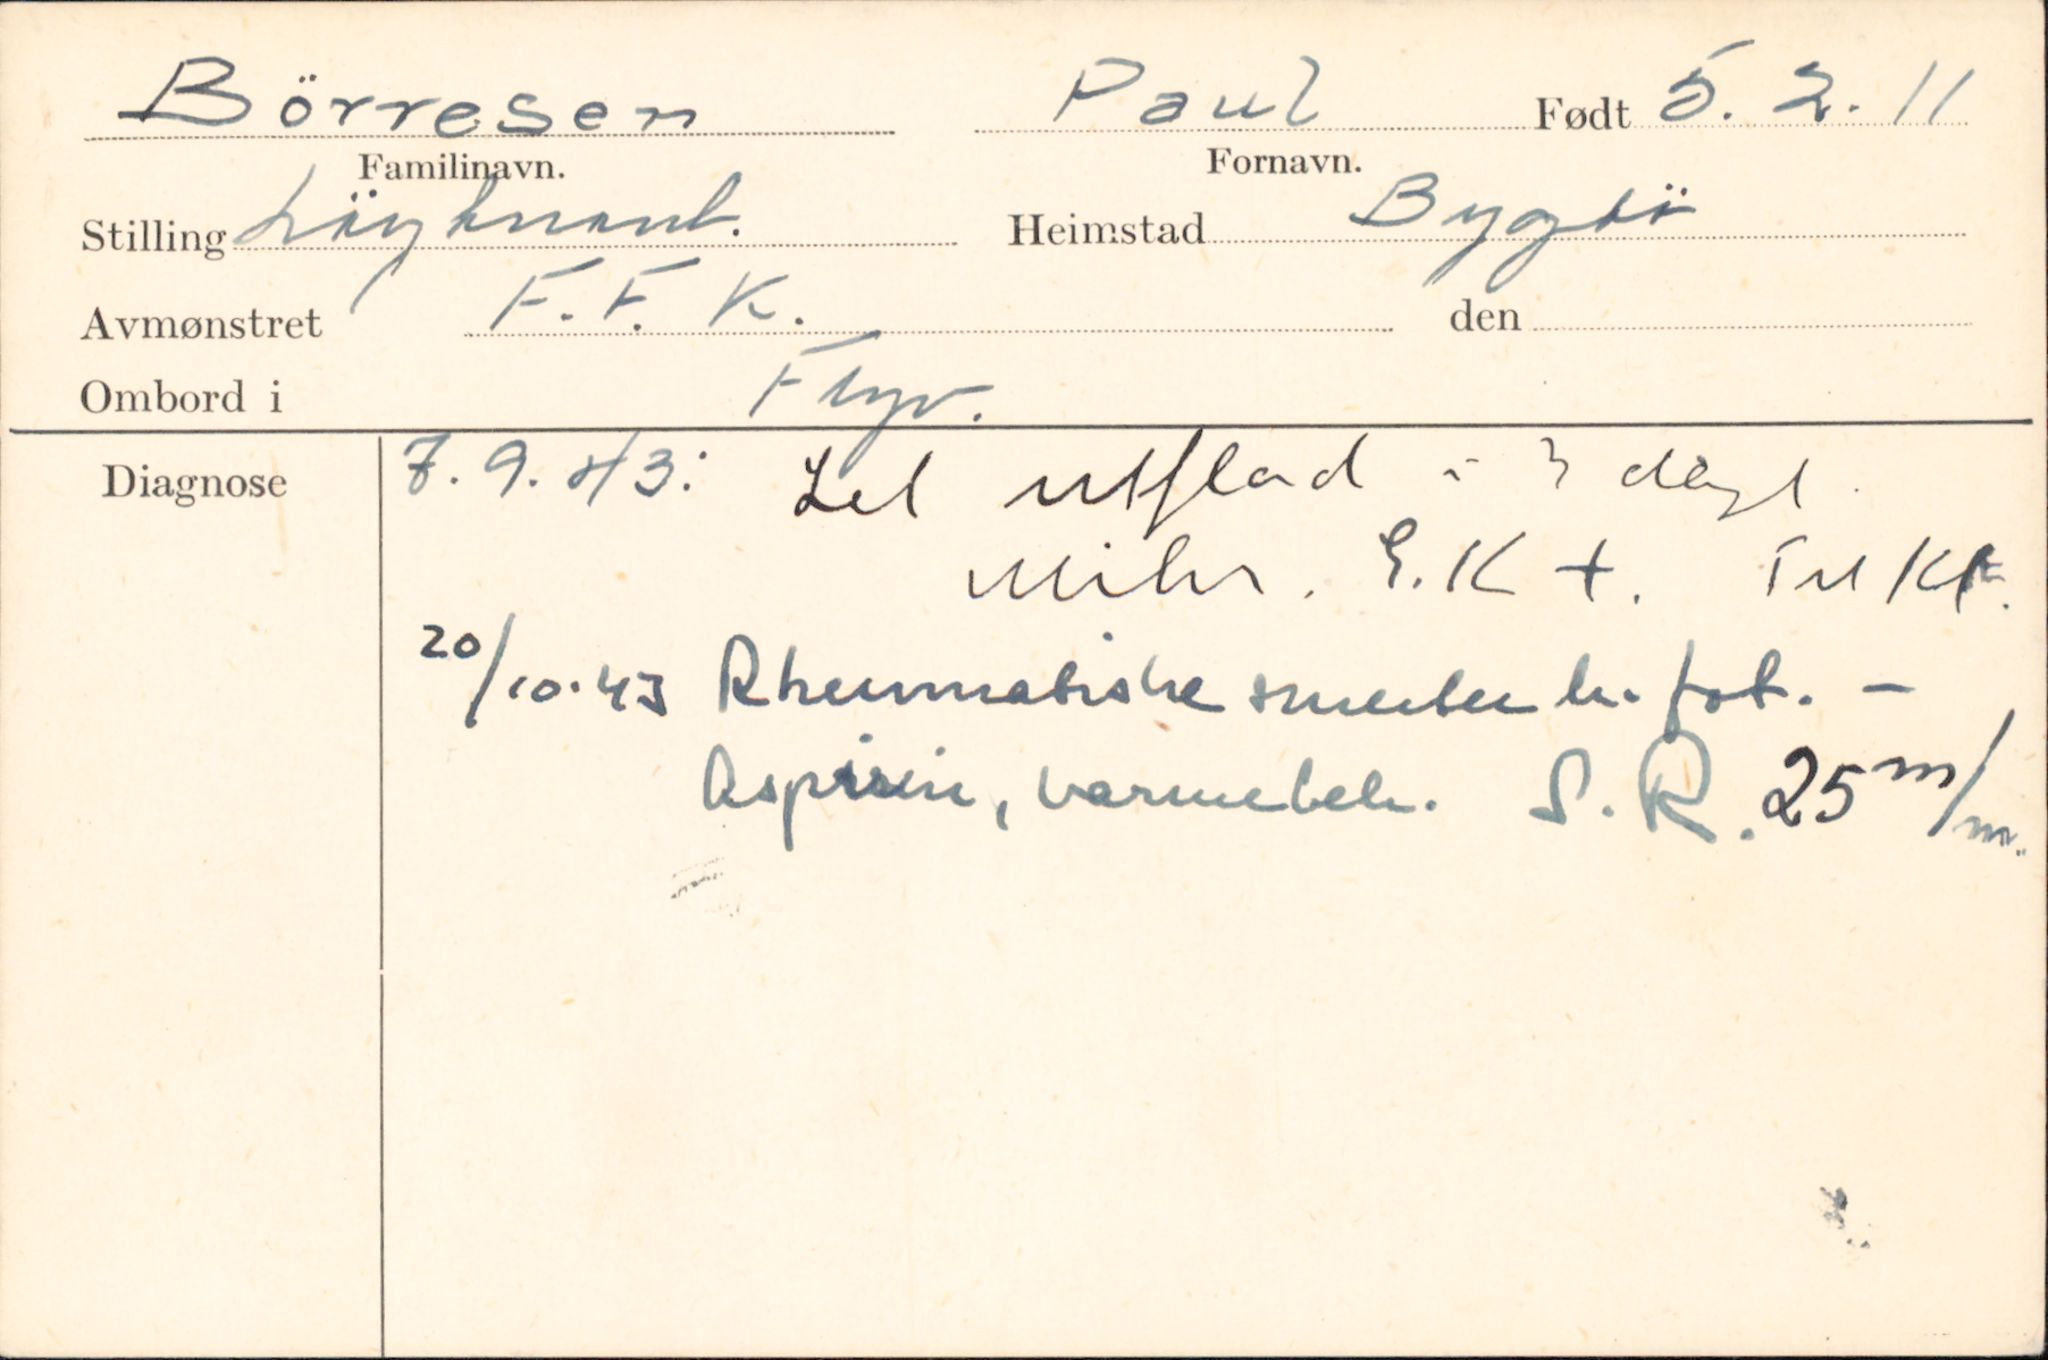 Börresen Paul Født 5. 2. 11
Familinavn. Fornavn.
Stilling Löytnant. Heimstad Bygdö
Avmønstret F. F. K. den
Ombord i Flyv.
Diagnose 7. 9. 43: Let utflod i 3 dage.
Mikr. G.K +. Til Kl.
20/10.43 Rheumatiske smerter h. fot. -
Aspirin, varmebeh. S.R. 25 m/m.